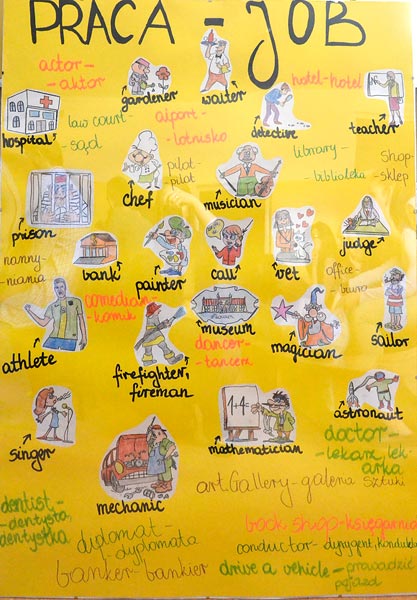 PRACA - JOB
actor -
- aktor
gardener
waiter
hotel-hotel
hospital
law court -
- sąd
aiport -
- lotnisko
detective
teacher
chef
pilot -
- pilot
musician
library -
- biblioteka
shop -
- sklep
prison
bank
painter
call
vet
judge
nanny -
- niania
office -
- biuro
comedian -
- komik
museum
magician
sailor
athlete
firefighter,
fireman
dancer -
- tancerz
singer
mechanic
mathematician
astronaut
doctor -
- lekarz, lek-
arka
art Gallery - galeria
Sztuki
dentist -
- dentysta,
dentystka
diplomat -
- dyplomata
banker - bankier
book shop - księgarnia
conductor - dyrygent, konduktor
drive a vehicle - prowadzić
pojazd
1+4